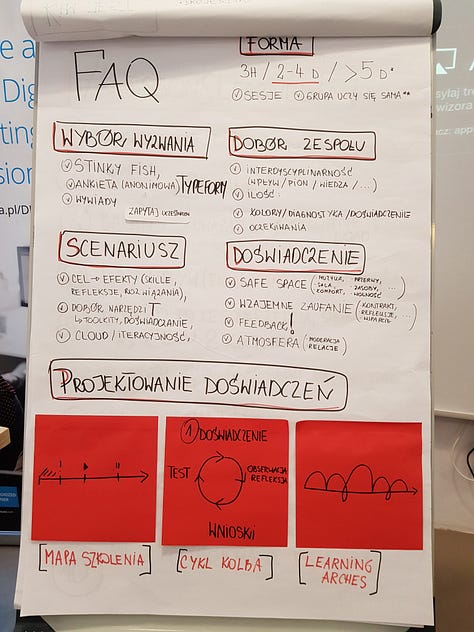 FAQ
FORMA
3H / 2-4 D / >5 D*
SESJE GRUPA UCZY SIĘ SAMA**
WYBÓR WYZWANIA
STINKY FISH,
ANKIETA (ANONIMOWA) TYPEFORM
WYWIADY
ZAPYTAJ UCZESTNIKÓW
DOBÓR ZESPOŁU
INTERDYSCYPLINARNOŚĆ
(WPŁYW / PION / WIEDZA / ...)
ILOŚĆ
KOLORY/DIAGNOSTYKA/DOŚWIADCZENIE
OCZEKIWANIA
SCENARIUSZ
CEL → EFEKTY (SKILLE,
REFLEKSJE, ROZWIĄZANIA),
DOBÓR NARZĘDZI T
TOOLKITY, DOŚWIADCZANIE,
CLOUD / ITERACYJNOŚĆ,
DOŚWIADCZENIE
SAFE SPACE (MUZYKA, PRZERWY, ...
SALA, ZASOBY,
KOMFORT, WOLNOŚĆ)
WZAJEMNE ZAUFANIE (KONTRAKT,
REFLEKSJE, ...
FEEDBACK!
ATMOSFERA (MODERACJA
RELACJE)
PROJEKTOWANIE DOŚWIADCZEŃ
I II
1 DOŚWIADCZENIE
TEST OBSERWACJA
REFLEKSJA
WNIOSKI
[MAPA SZKOLENIA] [CYKL KOLBA] [LEARNING
ARCHES]